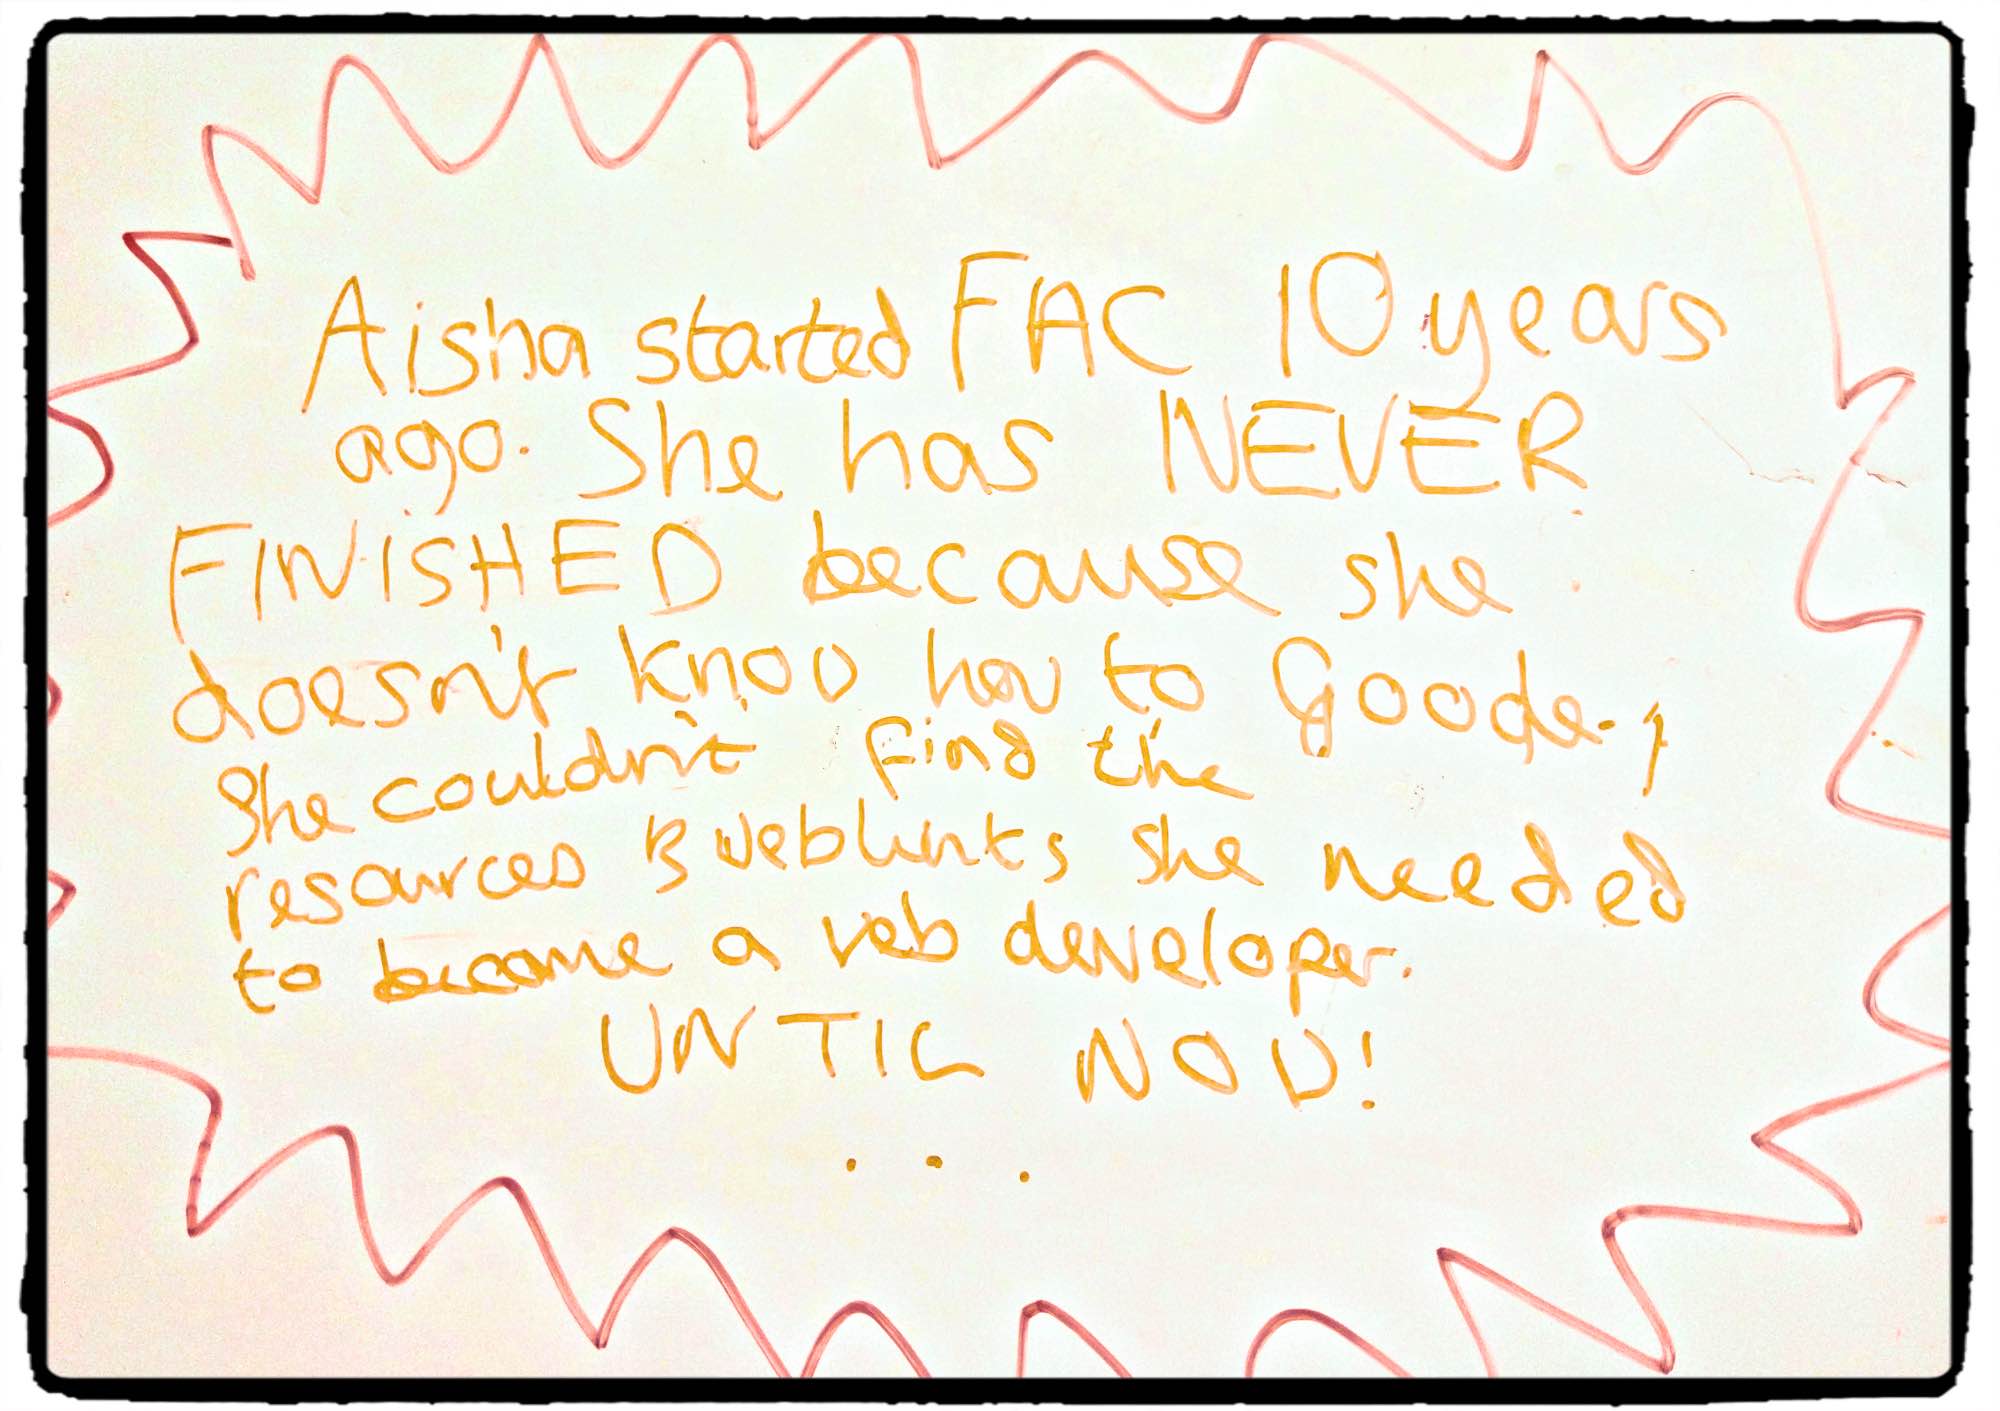 Aisha started FAC 10 years
ago. She has NEVER
FINISHED because she
doesn't know how to Goode.
She couldn't find the
resources & weblinks she needed
to become a web developer.
UNTIL NOW!
...